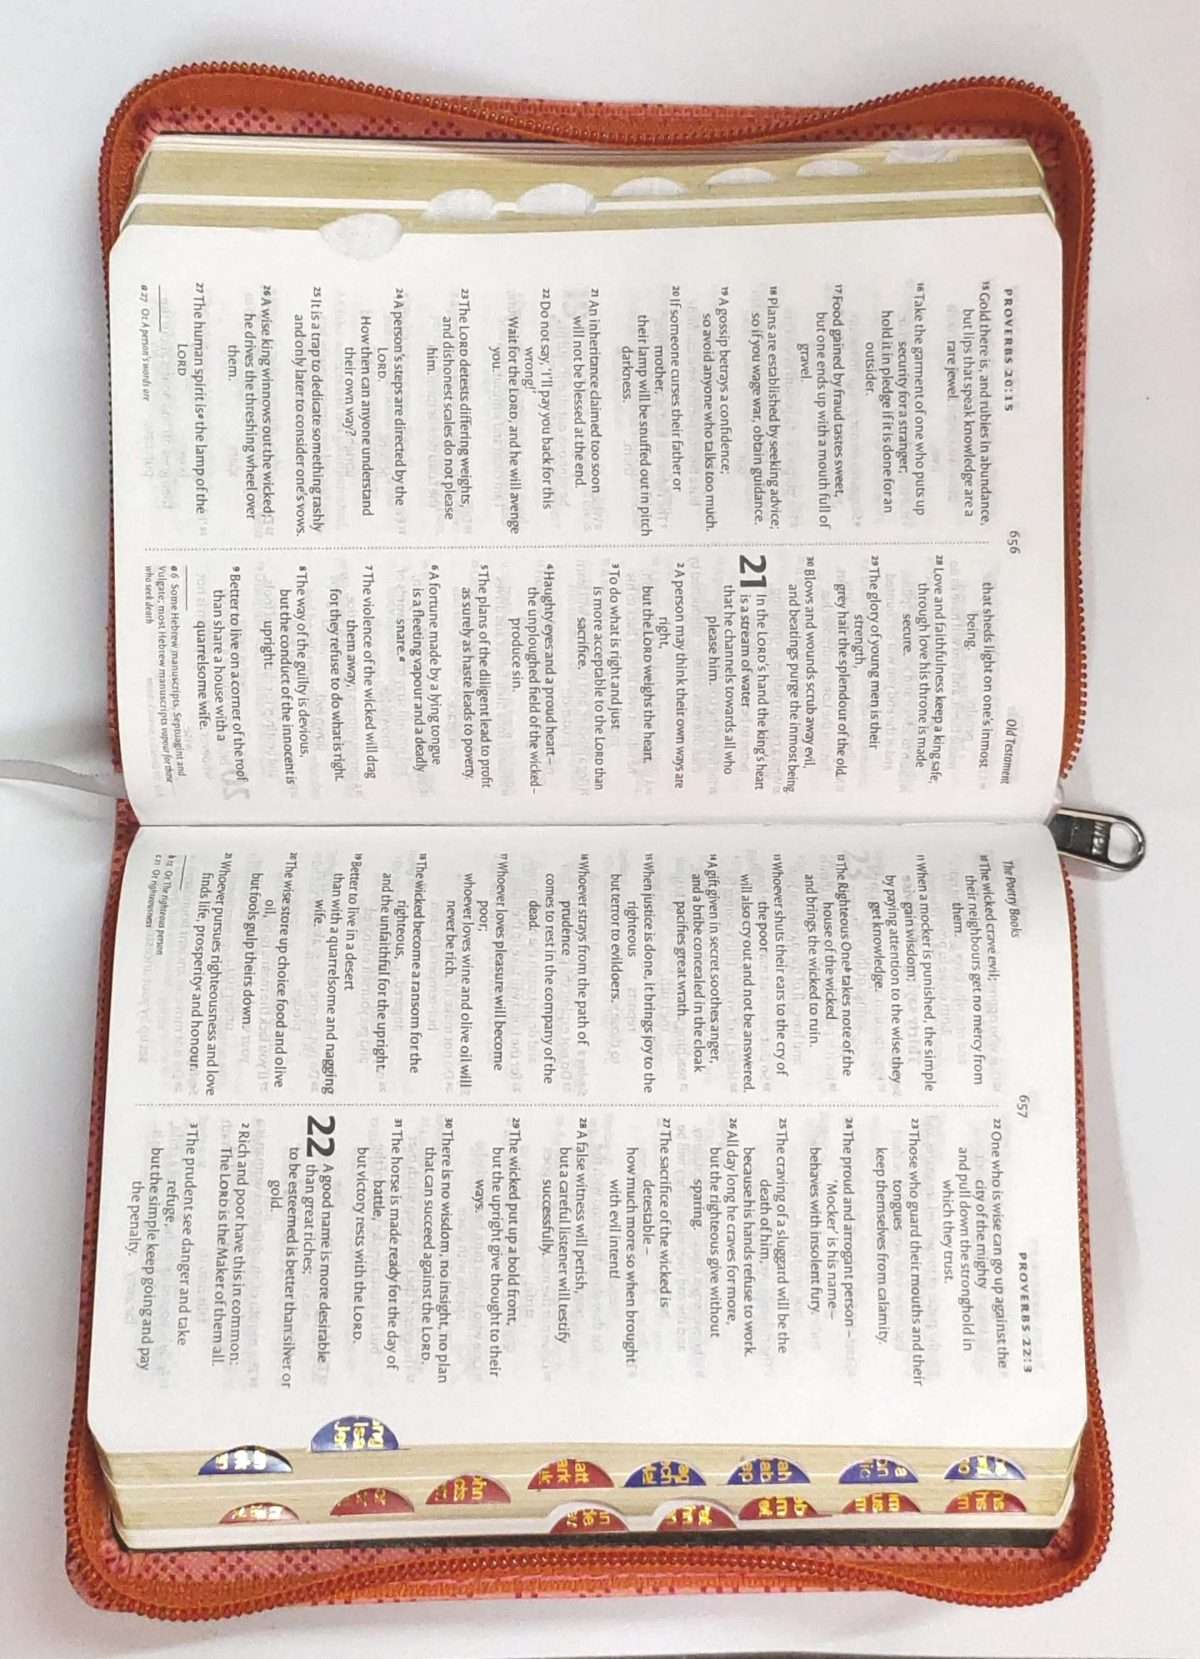 PROVERBS 20:15
656
Old Testament
15 Gold there is, and rubies in abundance,
but lips that speak knowledge are a
rare jewel.
16 Take the garment of one who puts up
security for a stranger;
hold it in pledge if it is done for an
outsider.
17 Food gained by fraud tastes sweet,
but one ends up with a mouth full of
gravel.
18 Plans are established by seeking advice;
so if you wage war, obtain guidance.
19 A gossip betrays a confidence;
so avoid anyone who talks too much.
20 If someone curses their father or
mother,
their lamp will be snuffed out in pitch
darkness.
21 An inheritance claimed too soon
will not be blessed at the end.
22 Do not say, 'I'll pay you back for this
wrong!'
Wait for the LORD, and he will avenge
you.
23 The LORD detests differing weights,
and dishonest scales do not please
him.
24 A person's steps are directed by the
LORD.
How then can anyone understand
their own way?
25 It is a trap to dedicate something rashly
and only later to consider one's vows.
26 A wise king winnows out the wicked;
he drives the threshing wheel over
them.
27 The human spirit is a the lamp of the
LORD
a 27 Or A person's words are
that sheds light on one's inmost
being.
28 Love and faithfulness keep a king safe,
through love his throne is made
secure.
29 The glory of young men is their
strength,
grey hair the splendour of the old.
30 Blows and wounds scrub away evil,
and beatings purge the inmost being.
21 In the LORD's hand the king's heart
is a stream of water
that he channels towards all who
please him.
2 A person may think their own ways are
right,
but the LORD weighs the heart.
3 To do what is right and just
is more acceptable to the LORD than
sacrifice.
4 Haughty eyes and a proud heart –
the unploughed field of the wicked –
produce sin.
5 The plans of the diligent lead to profit
as surely as haste leads to poverty.
6 A fortune made by a lying tongue
is a fleeting vapour and a deadly
snare. a
7 The violence of the wicked will drag
them away,
for they refuse to do what is right.
8 The way of the guilty is devious,
but the conduct of the innocent is
upright.
9 Better to live on a corner of the roof
than share a house with a
quarrelsome wife.
a 6 Some Hebrew manuscripts, Septuagint and
Vulgate; most Hebrew manuscripts vapour for those
who seek death
The Poetry Books
657
PROVERBS 22:3
10 The wicked crave evil;
their neighbours get no mercy from
them.
11 When a mocker is punished, the simple
gain wisdom;
by paying attention to the wise they
get knowledge.
12 The Righteous One b takes note of the
house of the wicked
and brings the wicked to ruin.
13 Whoever shuts their ears to the cry of
the poor
will also cry out and not be answered.
14 A gift given in secret soothes anger,
and a bribe concealed in the cloak
pacifies great wrath.
15 When justice is done, it brings joy to the
righteous
but terror to evildoers.
16 Whoever strays from the path of
prudence
comes to rest in the company of the
dead.
17 Whoever loves pleasure will become
poor;
whoever loves wine and olive oil will
never be rich.
18 The wicked become a ransom for the
righteous,
and the unfaithful for the upright.
19 Better to live in a desert
than with a quarrelsome and nagging
wife.
20 The wise store up choice food and olive
oil,
but fools gulp theirs down.
21 Whoever pursues righteousness and love
finds life, prosperity c and honour.
b 12 Or The righteous person
c 21 Or righteousness
22 One who is wise can go up against the
city of the mighty
and pull down the stronghold in
which they trust.
23 Those who guard their mouths and their
tongues
keep themselves from calamity.
24 The proud and arrogant person –
'Mocker' is his name –
behaves with insolent fury.
25 The craving of a sluggard will be the
death of him,
because his hands refuse to work.
26 All day long he craves for more,
but the righteous give without
sparing.
27 The sacrifice of the wicked is
detestable –
how much more so when brought
with evil intent!
28 A false witness will perish,
but a careful listener will testify
successfully.
29 The wicked put up a bold front,
but the upright give thought to their
ways.
30 There is no wisdom, no insight, no plan
that can succeed against the LORD.
31 The horse is made ready for the day of
battle,
but victory rests with the LORD.
22 A good name is more desirable
than great riches;
to be esteemed is better than silver or
gold.
2 Rich and poor have this in common:
The LORD is the Maker of them all.
3 The prudent see danger and take
refuge,
but the simple keep going and pay
the penalty.